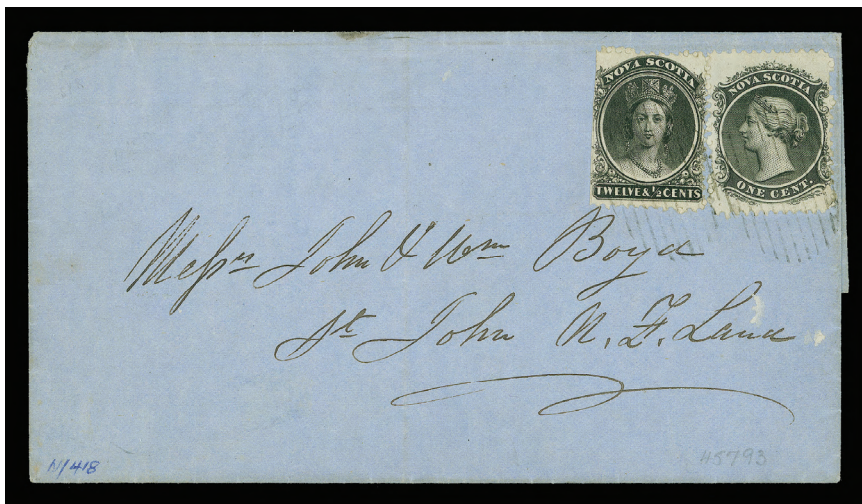 NOVA SCOTIA
TWELVE & ½ CENTS
NOVA SCOTIA
ONE CENT.
Messrs John & Wm Boyd
St John N. F. Land
N/418
45793